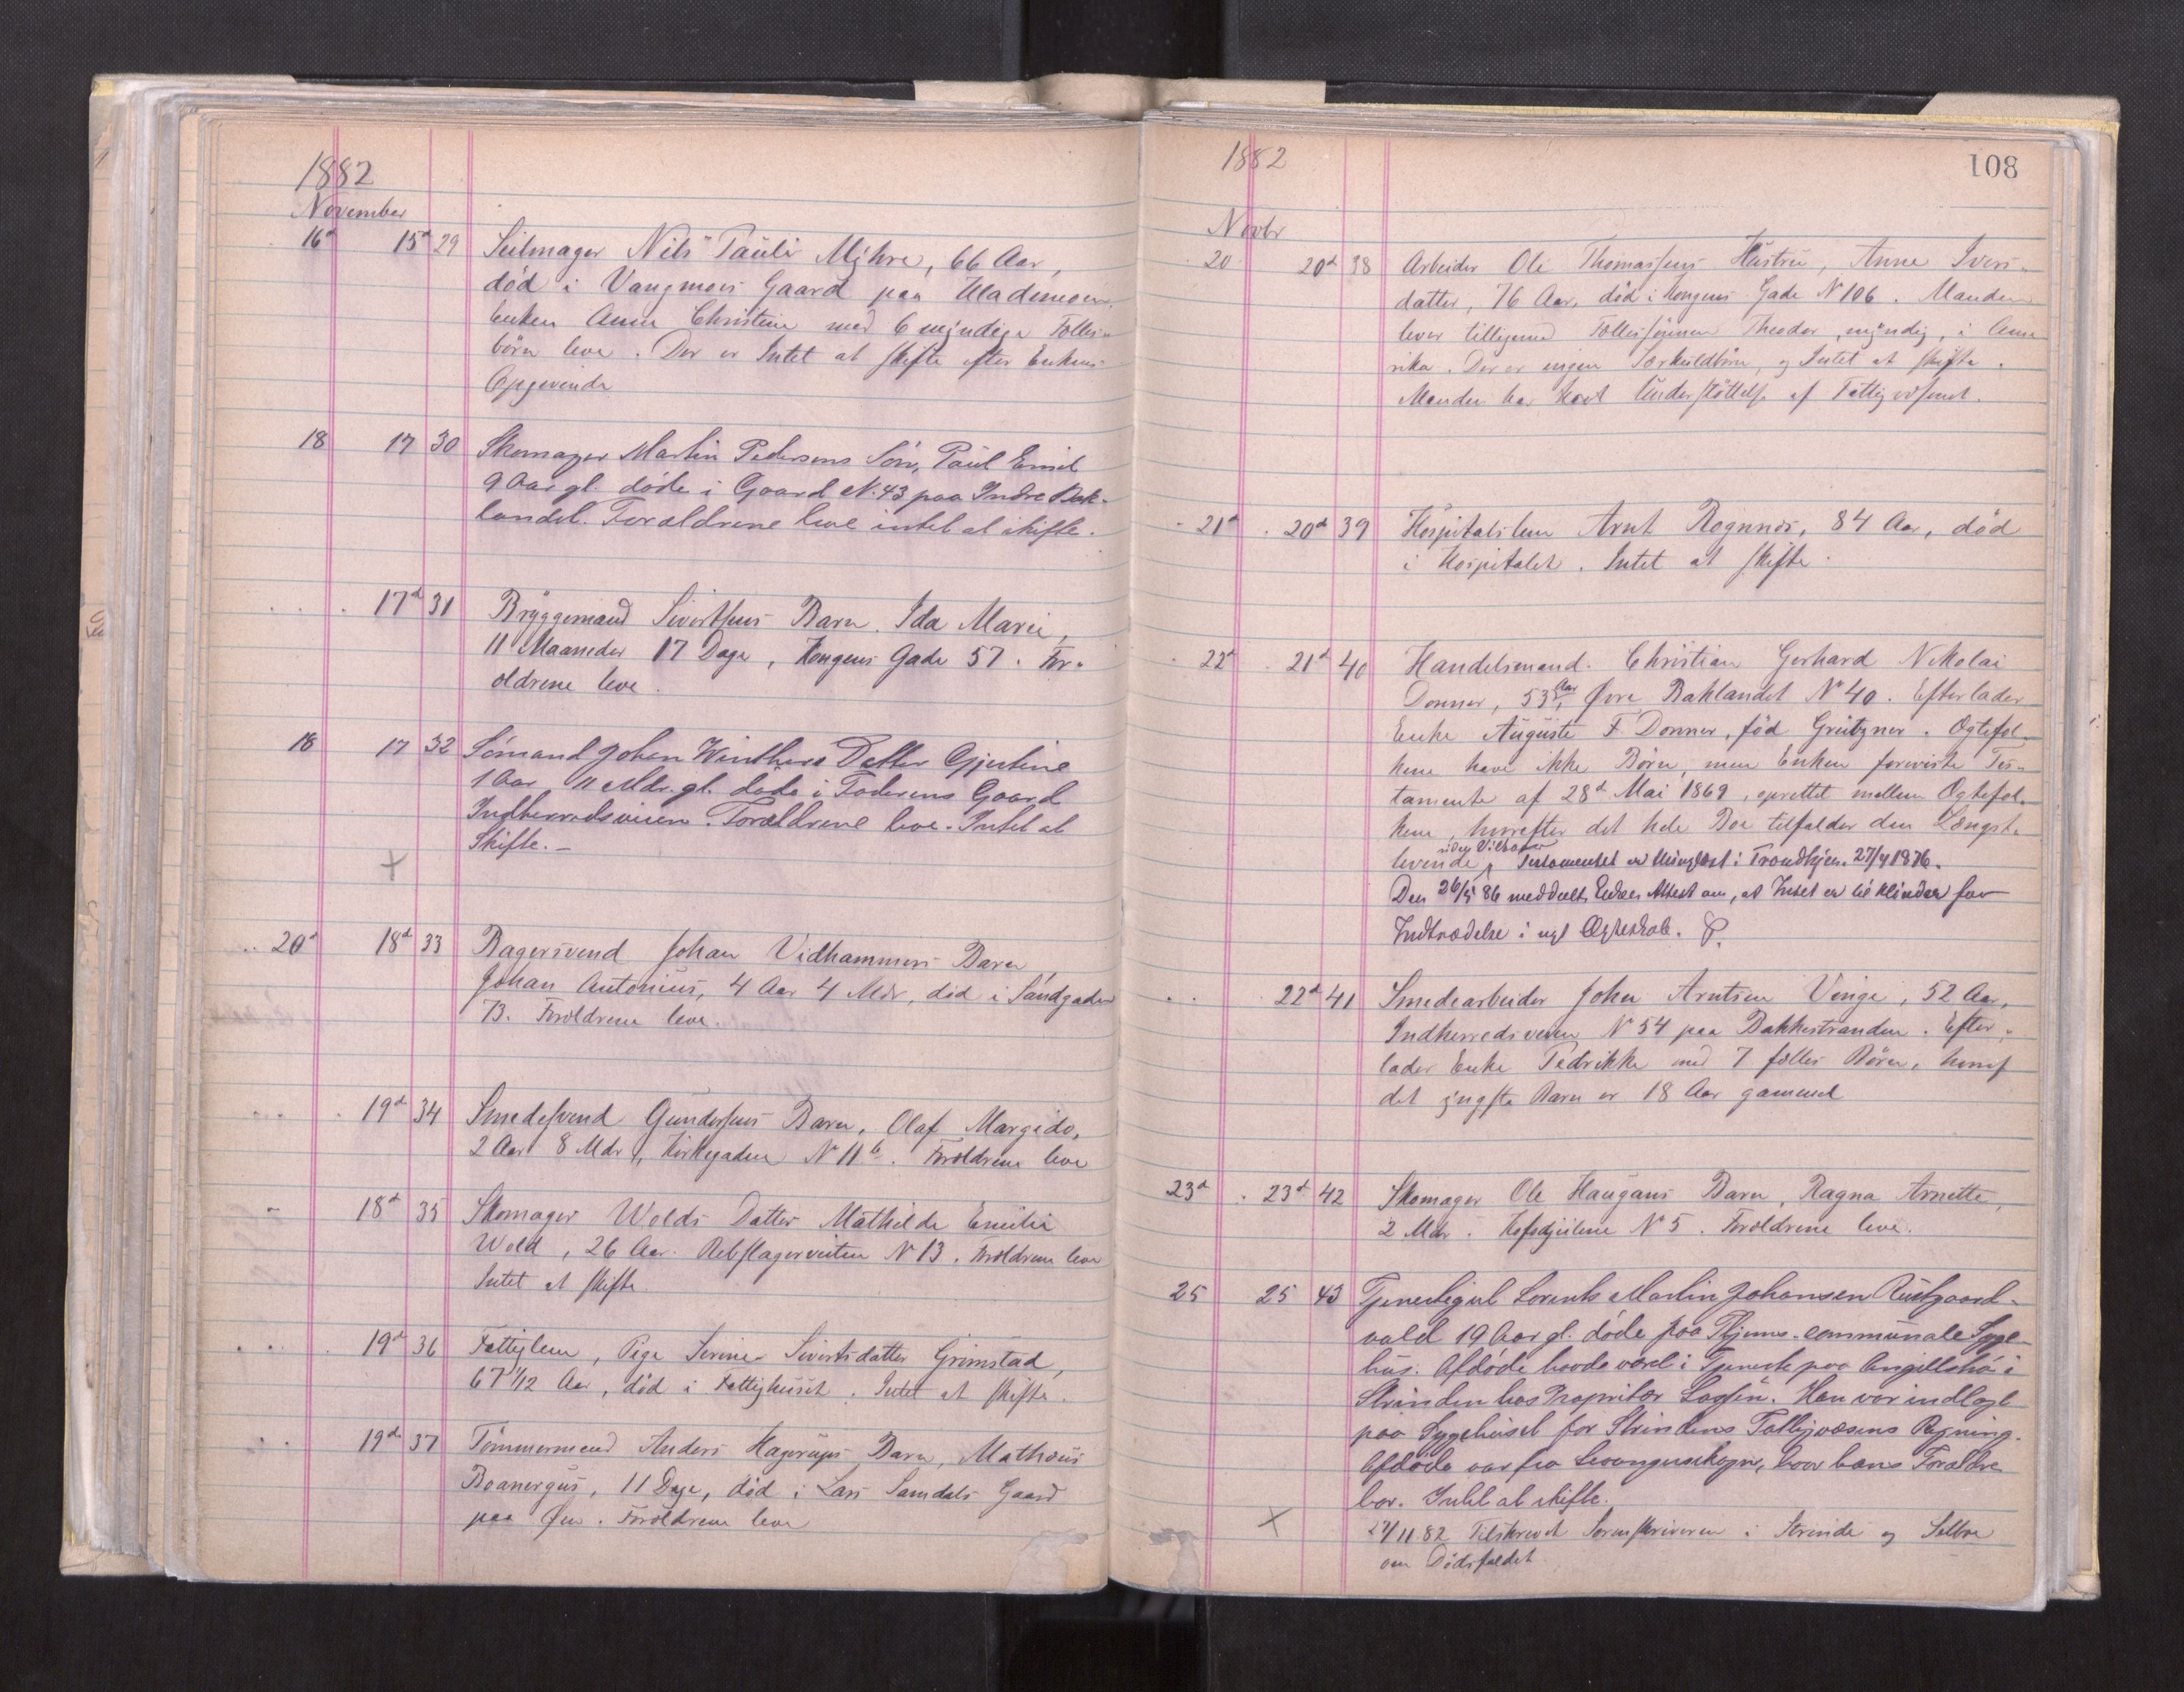 1882
November
16d 15d 29 Seilmager Nils Pauli Myhre, 66 Aar,
död i Vangmos Gaard paa Ilademoen.
Enken Anna Christine med 6 myndige Fælles-
börn leve. Der er Intet at skifte efter Enkens
Opgivende
18 17 30 Skomager Martin Pedersens Sön, Paul Emil
9 Aar gl. döde i Gaard N. 43 paa Indre Bak-
landet. Forældrene leve intet at skifte.
17d 31 Bryggemand Sivertsens Barn, Ida Marie,
11 Maaneder 17 Dage, Kongens Gade 57. For-
ældrene leve.
18 17 32 Sömand Johan Winthers Datter Gjertine
1 Aar 11 Mdr. gl. döde i Faderens Gaard
Indherredsveien. Forældrene leve. Intet at
Skifte.-
20d 18d 33 Bagersvend Johan Vidhammers Barn
Johan Antonius, 4 Aar 4 Mdr, död i Sandgaden
73. Forældrene leve.
19d 34 Smedesvend Gundersens Barn, Olaf Margido,
2 Aar 8 Mdr, Kirkegaden N 11b. Forældrene leve
18d 35 Skomager Wolds Datter Mathilde Emilie
Wold, 26 Aar. Rebslagerveiten N 13. Forældrene leve
Intet at skifte.
19d 36 Fattiglem, Pige Serine Sivertsdatter Grimstad,
67 1/12 Aar, död i Fattighuset. Intet at skifte.
19d 37 Tömmermand Anders Hagerups Barn, Mathæus
Boanergus, 11 Dage, död i Lars Samdals Gaard
paa Øen. Forældrene leve
1882
108
Novbr
20 20d 38 Arbeider Ole Thomassens Hustru, Anne Ivers-
datter, 76 Aar, död i Kongens Gade N 106. Manden
lever tilligemed Fællessönnen Theodor, myndig, i Ame
rika. Der er ingen Særkuldbörn, og Intet at skifte.
Manden har havt Understöttelse af Fattigvæsenet.
21d 20d 39 Hospitalslem Arnt Rognnes, 84 Aar, död
i Hospitalet. Intet at skifte.
22d 21d 40 Handelsmand Christian Gerhard Nikolai
Donner, 53 Aar, Øvre Baklandet No 40. Efterlader
Enke Auguste F. Donner, född Grützner. Ægtefol-
kene have ikke Börn, men Enken foreviste Tes-
tamente af 28d Mai 1869, oprettet mellem Ægtefol-
kene, hvorefter det hele Boe tilfalder den Længst-
levende uden Vilkaar. Testamentet er thinglæst i Trondhjem 27/4 1876.
Den 26/5 86 meddelt Enken Attest om, at Intet er til Hinder for
Indtrædelse i nyt Ægteskab.
22d 41 Smedearbeider John Arntsen Vinge, 52 Aar,
Indherredsveien N 54 paa Bakkestranden. Efter-
lader Enke Fredrikke med 7 fælles Börn, hvoraf
det yngste Barn er 18 Aar gammel
23d 23d 42 Skomager Ole Haugans Barn, Ragna Arnette,
2 Mdr. Hofsdjielene N 5. Forældrene leve.
25 25 43 Tjenestegut Lorents Martin Johansen Rustgaard-
vald 19 Aar gl. döde paa Thjems communale Syge-
hus. Afdöde havde været i Tjeneste paa Angelltrö i
Strinden hos Propritær Lassen. Han var indlagt
paa Sygehuset for Strindens Fattigvæsens Regning.
Afdöde var fra Levangerskogn, hvor hans Forældre
bor. Intet at skifte.
27/11 82 Tilskrevet Sorenskriveren i Strinda og Selbu
om Dödsfaldet